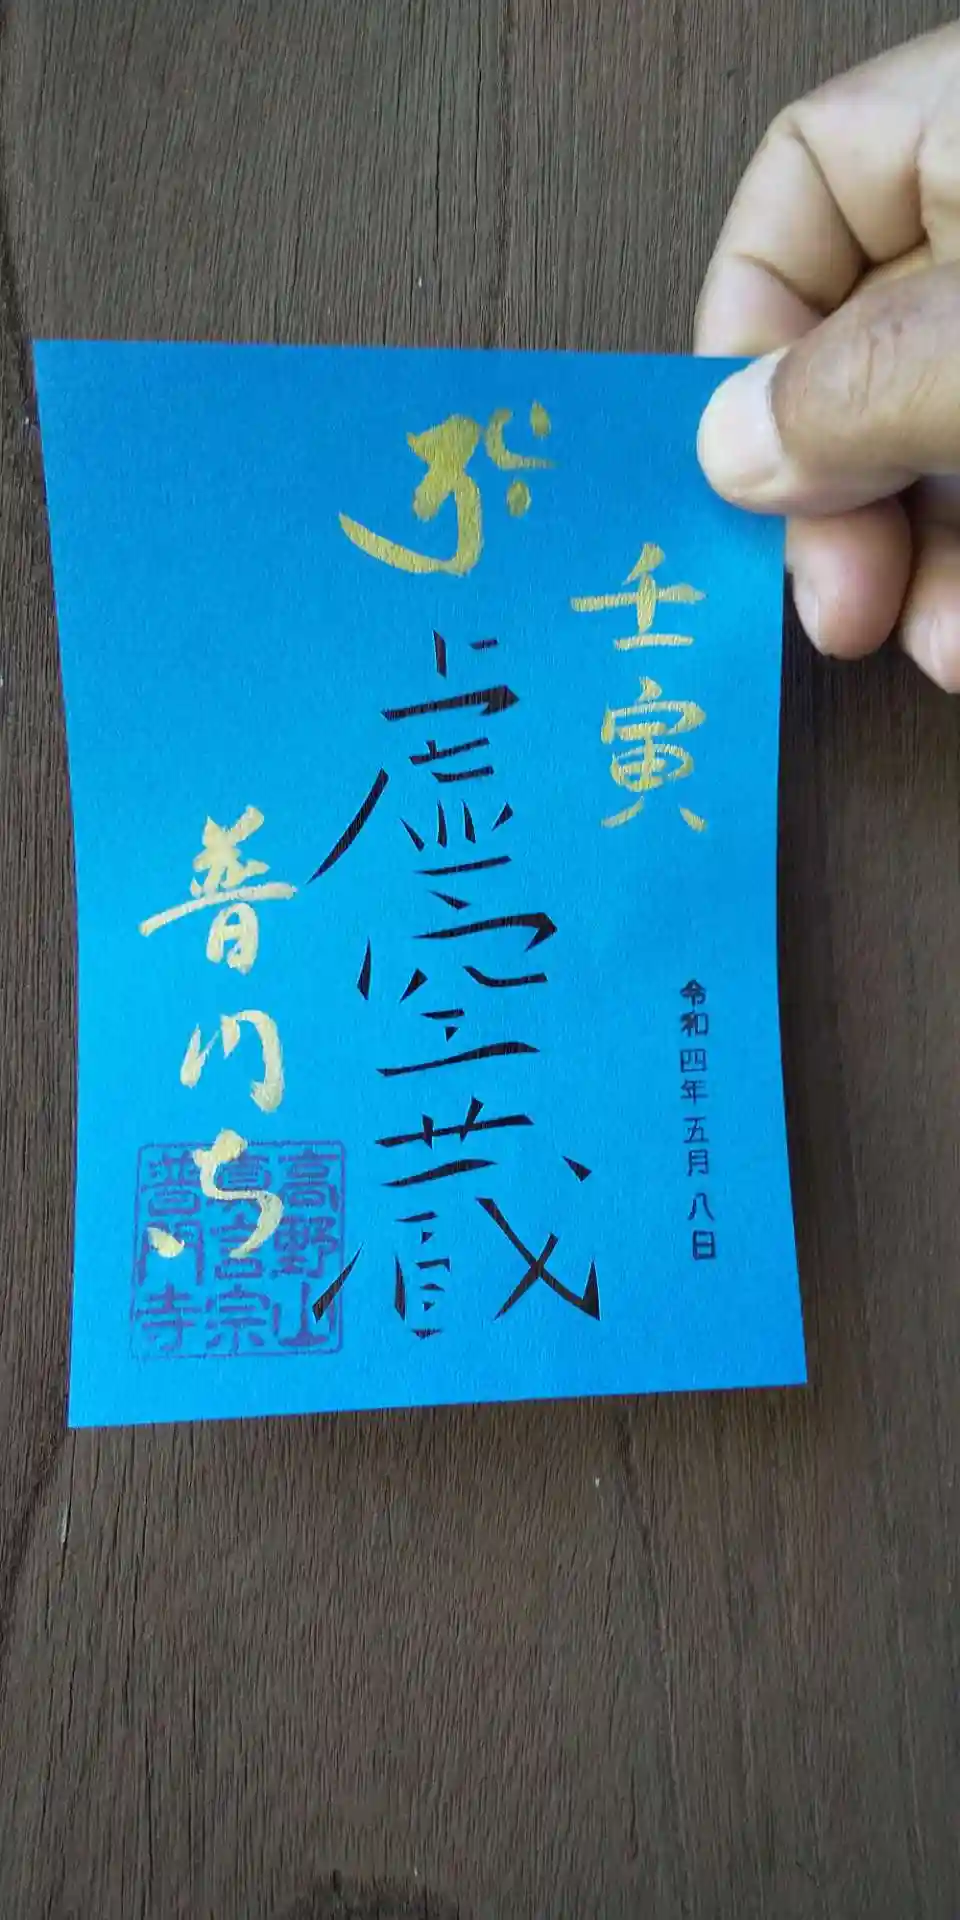 壬寅
令和四年五月八日
虚空蔵
普門寺
高野山
真言宗
普門寺